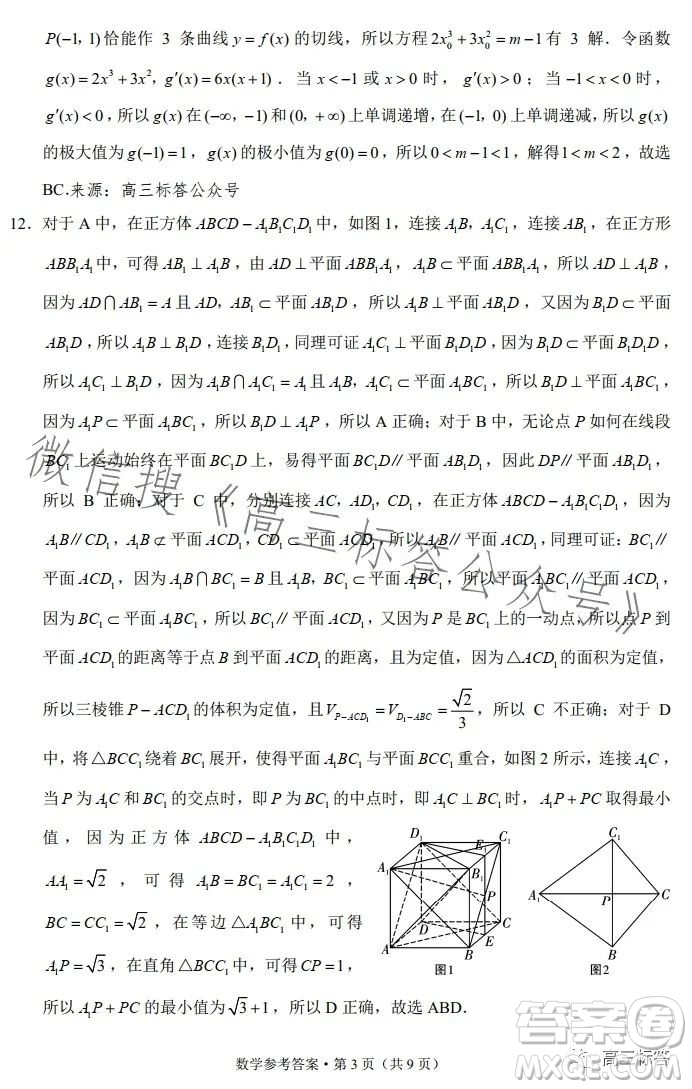 P(-1, 1)恰能作 3 条曲线 y = f(x) 的切线，所以方程 2x₀³ + 3x₀² = m - 1 有 3 解．令函数
g(x) = 2x³ + 3x²，g′(x) = 6x(x + 1)．当 x < -1 或 x > 0 时，g′(x) > 0；当 -1 < x < 0 时，
g′(x) < 0，所以 g(x) 在 (-∞，-1) 和 (0，+∞) 上单调递增，在 (-1，0) 上单调递减，所以 g(x)
的极大值为 g(-1) = 1，g(x) 的极小值为 g(0) = 0，所以 0 < m - 1 < 1，解得 1 < m < 2，故选
BC．来源：高三标答公众号
12．对于 A 中，在正方体 ABCD - A₁B₁C₁D₁ 中，如图 1，连接 A₁B，A₁C₁，连接 AB₁，在正方形
ABB₁A₁ 中，可得 AB₁ ⊥ A₁B，由 AD ⊥ 平面 ABB₁A₁，A₁B ⊂ 平面 ABB₁A₁，所以 AD ⊥ A₁B，
因为 AD ∩ AB₁ = A 且 AD，AB₁ ⊂ 平面 AB₁D，所以 A₁B ⊥ 平面 AB₁D，又因为 B₁D ⊂ 平面
AB₁D，所以 A₁B ⊥ B₁D，连接 B₁D₁，同理可证 A₁C₁ ⊥ 平面 B₁D₁D，因为 B₁D ⊂ 平面 B₁D₁D，
所以 A₁C₁ ⊥ B₁D，因为 A₁B ∩ A₁C₁ = A₁ 且 A₁B，A₁C₁ ⊂ 平面 A₁BC₁，所以 B₁D ⊥ 平面 A₁BC₁，
因为 A₁P ⊂ 平面 A₁BC₁，所以 B₁D ⊥ A₁P，所以 A 正确；对于 B 中，无论点 P 如何在线段
BC₁ 上运动始终在平面 BC₁D 上，易得平面 BC₁D∥平面 AB₁D₁，因此 DP∥平面 AB₁D₁，
所以 B 正确；对于 C 中，分别连接 AC，AD₁，CD₁，在正方体 ABCD - A₁B₁C₁D₁，因为
A₁B∥CD₁，A₁B ⊄ 平面 ACD₁，CD₁ ⊂ 平面 ACD₁，所以 A₁B∥平面 ACD₁，同理可证：BC₁∥
平面 ACD₁，因为 A₁B ∩ BC₁ = B 且 A₁B，BC₁ ⊂ 平面 A₁BC₁，所以平面 A₁BC₁∥平面 ACD₁，
因为 BC₁ ⊂ 平面 A₁BC₁，所以 BC₁∥平面 ACD₁，又因为 P 是 BC₁ 上的一动点，所以点 P 到
平面 ACD₁ 的距离等于点 B 到平面 ACD₁ 的距离，且为定值，因为 △ACD₁ 的面积为定值，
所以三棱锥 P - ACD₁ 的体积为定值，且 V_{P-ACD₁} = V_{D₁-ABC} = √2/3，所以 C 不正确；对于 D
中，将 △BCC₁ 绕着 BC₁ 展开，使得平面 A₁BC₁ 与平面 BCC₁ 重合，如图 2 所示，连接 A₁C，
当 P 为 A₁C 和 BC₁ 的交点时，即 P 为 BC₁ 的中点时，即 A₁C ⊥ BC₁ 时，A₁P + PC 取得最小
值，因为正方体 ABCD - A₁B₁C₁D₁ 中，
AA₁ = √2，可得 A₁B = BC₁ = A₁C₁ = 2，
BC = CC₁ = √2，在等边 △A₁BC₁ 中，可得
A₁P = √3，在直角 △BCC₁ 中，可得 CP = 1，
所以 A₁P + PC 的最小值为 √3 + 1，所以 D 正确，故选 ABD．
D₁ E₁ C₁
A₁ B₁
P
D C
E
A B
图1
C₁
A₁ P C
B
图2
微信搜《高三标答公众号》
数学参考答案·第 3 页（共 9 页）
高三标答
答案圈
MXQE.COM